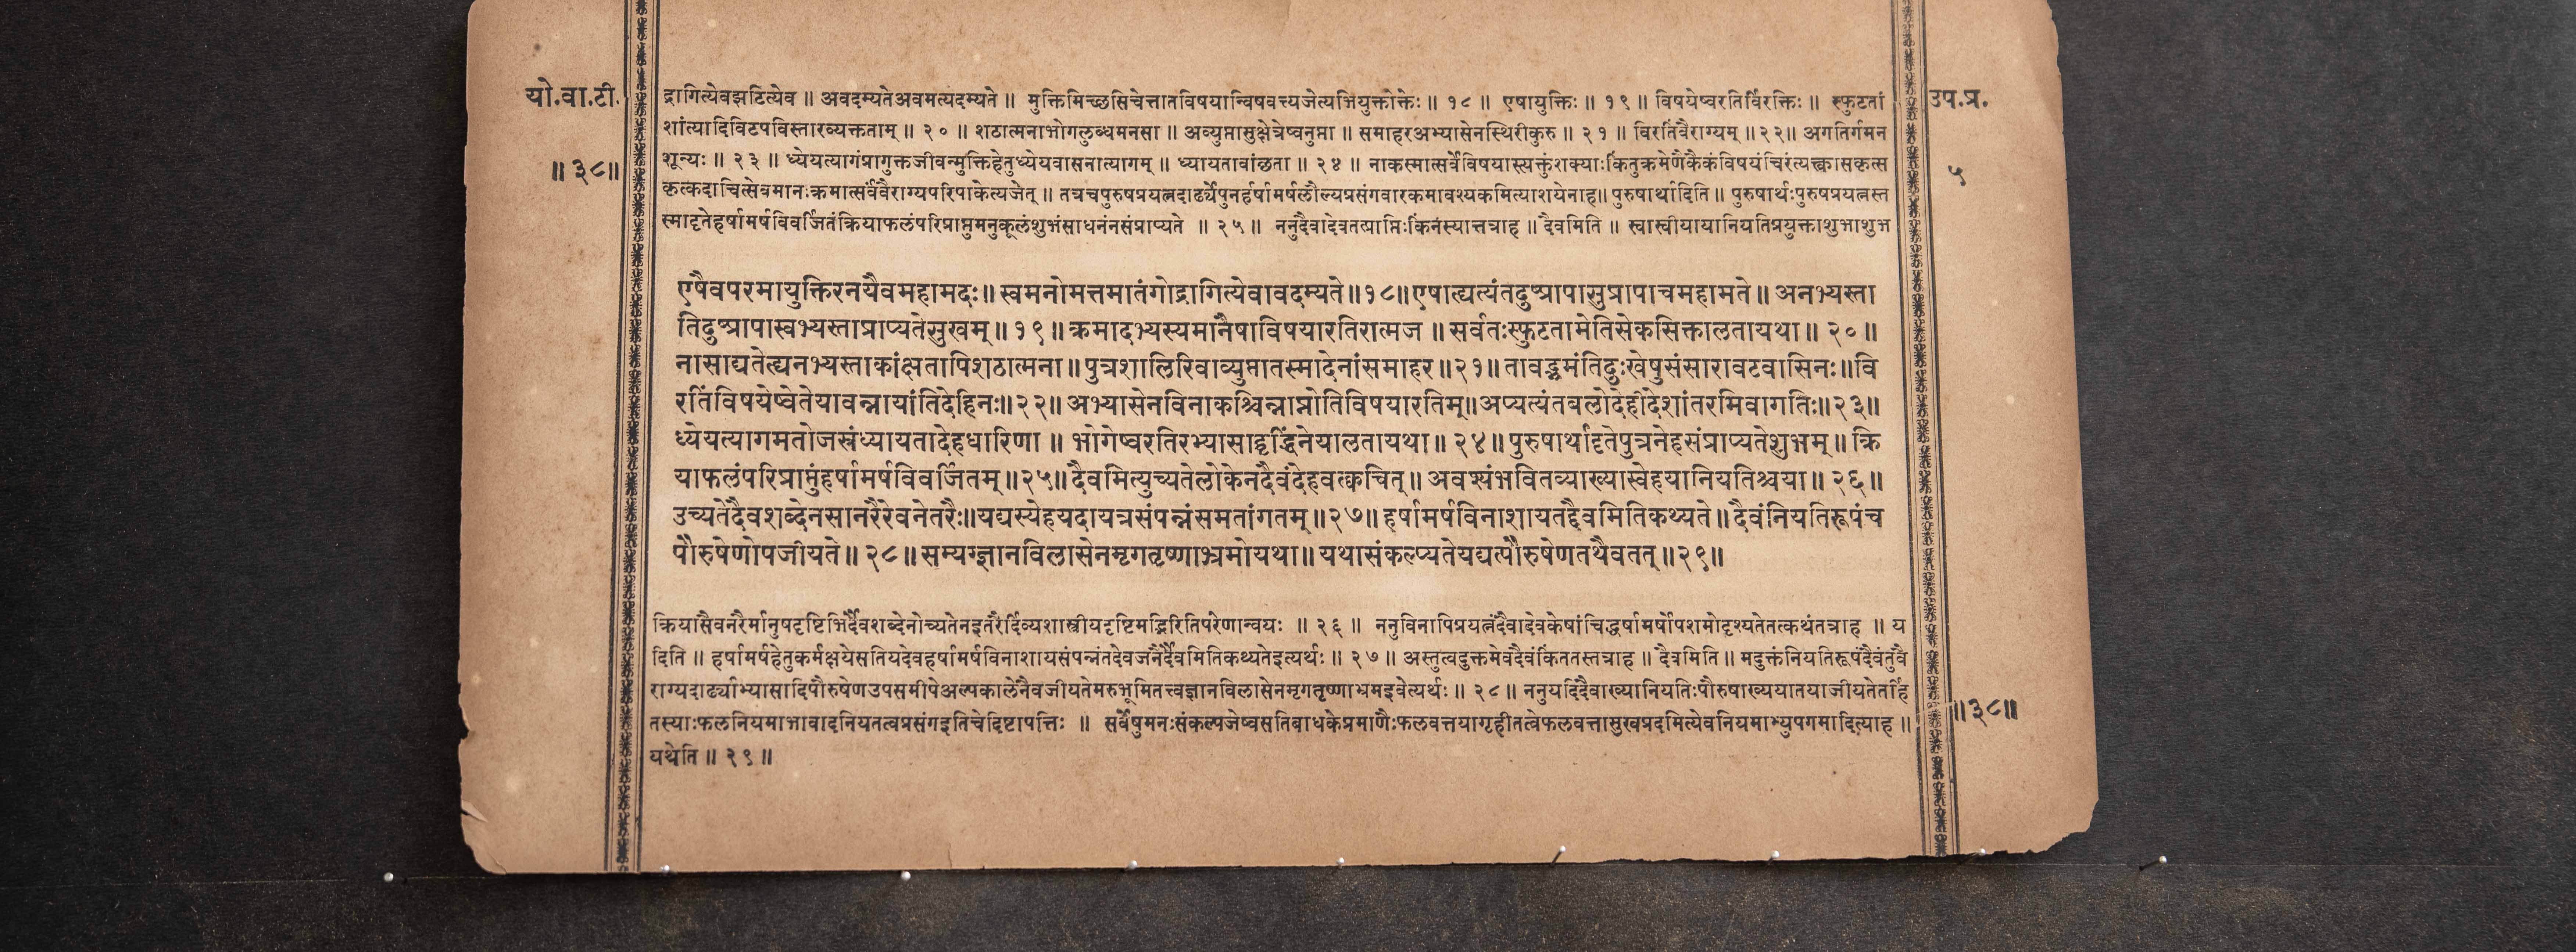 यो.वा.टी.
॥ ३८॥
द्रागित्येवझटित्येव ॥ अवदम्यतेअवमत्यदम्यते ॥ मुक्तिमिच्छसिचेत्तातविषयान्विषवत्त्यजेत्यभियुक्तोक्तेः ॥ १८ ॥ एषायुक्तिः ॥ १९ ॥ विषयेष्वरतिर्विरक्तिः ॥ स्फुटतां
शांत्यादिविटपविस्तारव्यक्तताम् ॥ २० ॥ शठात्मनाभोगलुब्धमनसा ॥ अव्युप्तासुक्षेत्रेष्वनुप्ता ॥ समाहरअभ्यासेनस्थिरीकुरु ॥ २१ ॥ विरतिंवैराग्यम् ॥ २२॥ अगतिर्गमन
शून्यः ॥ २३ ॥ ध्येयत्यागंप्रागुक्तजीवन्मुक्तिहेतुध्येयवासनात्यागम् ॥ ध्यायतावांछता ॥ २४ ॥ नाकस्मात्सर्वेविषयास्त्यक्तुंशक्याःकिंतुक्रमेणैकैकंविषयंचिरंत्यक्त्वासकृत्स
कृत्कदाचित्सेवमानःक्रमात्सर्ववैराग्यपरिपाकेत्यजेत् ॥ तत्रचपुरुषप्रयत्नदार्ढ्येपुनर्हर्षामर्षलौल्यप्रसंगवारकमावश्यकमित्याशयेनाह॥ पुरुषार्थादिति ॥ पुरुषार्थःपुरुषप्रयत्नस्त
स्मादृतेहर्षामर्षविवर्जितंक्रियाफलंपरिप्राप्तुमनुकूलंशुभंसाधनंनसंप्राप्यते ॥ २५ ॥ ननुदैवादेवतत्प्राप्तिःकिंनस्यात्तत्राह ॥ दैवमिति ॥ स्वास्वीयायानियतिप्रयुक्ताशुभाशुभ
एषैवपरमायुक्तिरनयैवमहामदः॥ स्वमनोमत्तमातंगोद्रागित्येवावदम्यते॥१८॥एषात्द्यत्यंतदुष्प्रापासुप्रापाचमहामते॥ अनभ्यस्ता
तिदुष्प्रापास्वभ्यस्ताप्राप्यतेसुखम्॥१९॥क्रमादभ्यस्यमानैषाविषयारतिरात्मज ॥ सर्वतःस्फुटतामेतिसेकसिक्तालतायथा॥ २०॥
नासाद्यतेत्द्यनभ्यस्ताकांक्षतापिशठात्मना॥पुत्रशालिरिवाव्युप्तातस्मादेनांसमाहर॥२१॥तावद्भ्रमंतिदुःखेषुसंसारावटवासिनः॥वि
रतिंविषयेष्वेतेयावन्नायांतिदेहिनः॥२२॥अभ्यासेनविनाकश्चिन्नाप्नोतिविषयारतिम्॥अप्यत्यंतबलोदेहीदेशांतरमिवागतिः॥२३॥
ध्येयत्यागमतोजस्रंध्यायतादेहधारिणा ॥ भोगेष्वरतिरभ्यासाद्वृद्धिंनेयालतायथा॥ २४॥पुरुषार्थादृतेपुत्रनेहसंप्राप्यतेशुभम्॥ क्रि
याफलंपरिप्राप्तुंहर्षामर्षविवर्जितम्॥२५॥दैवमित्युच्यतेलोकेनदैवंदेहवत्क्वचित्॥ अवश्यंभवितव्याख्यास्वेहयानियतिश्चया॥ २६॥
उच्यतेदैवशब्देनसानरैरेवनेतरैः॥यद्यस्येहयदायत्रसंपन्नंसमतांगतम्॥२७॥हर्षामर्षविनाशायतद्दैवमितिकथ्यते॥दैवंनियतिरूपंच
पौरुषेणोपजीयते॥ २८॥सम्यग्ज्ञानविलासेनमृगतृष्णाभ्रमोयथा॥यथासंकल्प्यतेयद्यत्पौरुषेणतथैवतत्॥२९॥
क्रियासैवनरैर्मानुषदृष्टिभिर्दैवशब्देनोच्यतेनइतरैर्दिव्यशास्त्रीयदृष्टिमद्भिरितिपरेणान्वयः ॥ २६ ॥ ननुविनापिप्रयत्नंदैवादेवकेषांचिद्धर्षामर्षोपशमोदृश्यतेतत्कथंतत्राह ॥ य
दिति ॥ हर्षामर्षहेतुकर्मक्षयेसतियदेवहर्षामर्षविनाशायसंपन्नंतदेवजनैर्दैवमितिकथ्यतेइत्यर्थः ॥ २७ ॥ अस्तुत्वदुक्तमेवदैवंकिंततस्तत्राह ॥ दैवमिति ॥ मदुक्तंनियतिरूपंदैवंतुवै
राग्यदार्ढ्याभ्यासादिपौरुषेणउपसमीपेअल्पकालेनैवजीयतेमरुभूमितत्त्वज्ञानविलासेनमृगतृष्णाभ्रमइवेत्यर्थः ॥ २८ ॥ ननुयदिदैवाख्यानियतिःपौरुषाख्ययातयाजीयतेतर्हि
तस्याःफलनियमाभावादनियतत्वप्रसंगइतिचेदिष्टापत्तिः ॥ सर्वेषुमनःसंकल्पजेष्वसतिबाधकेप्रमाणैःफलवत्तयागृहीतत्वेफलवत्तासुखप्रदमित्येवनियमाभ्युपगमादित्याह ॥
यथेति ॥ २९ ॥
उप.प्र.
५
॥३८॥